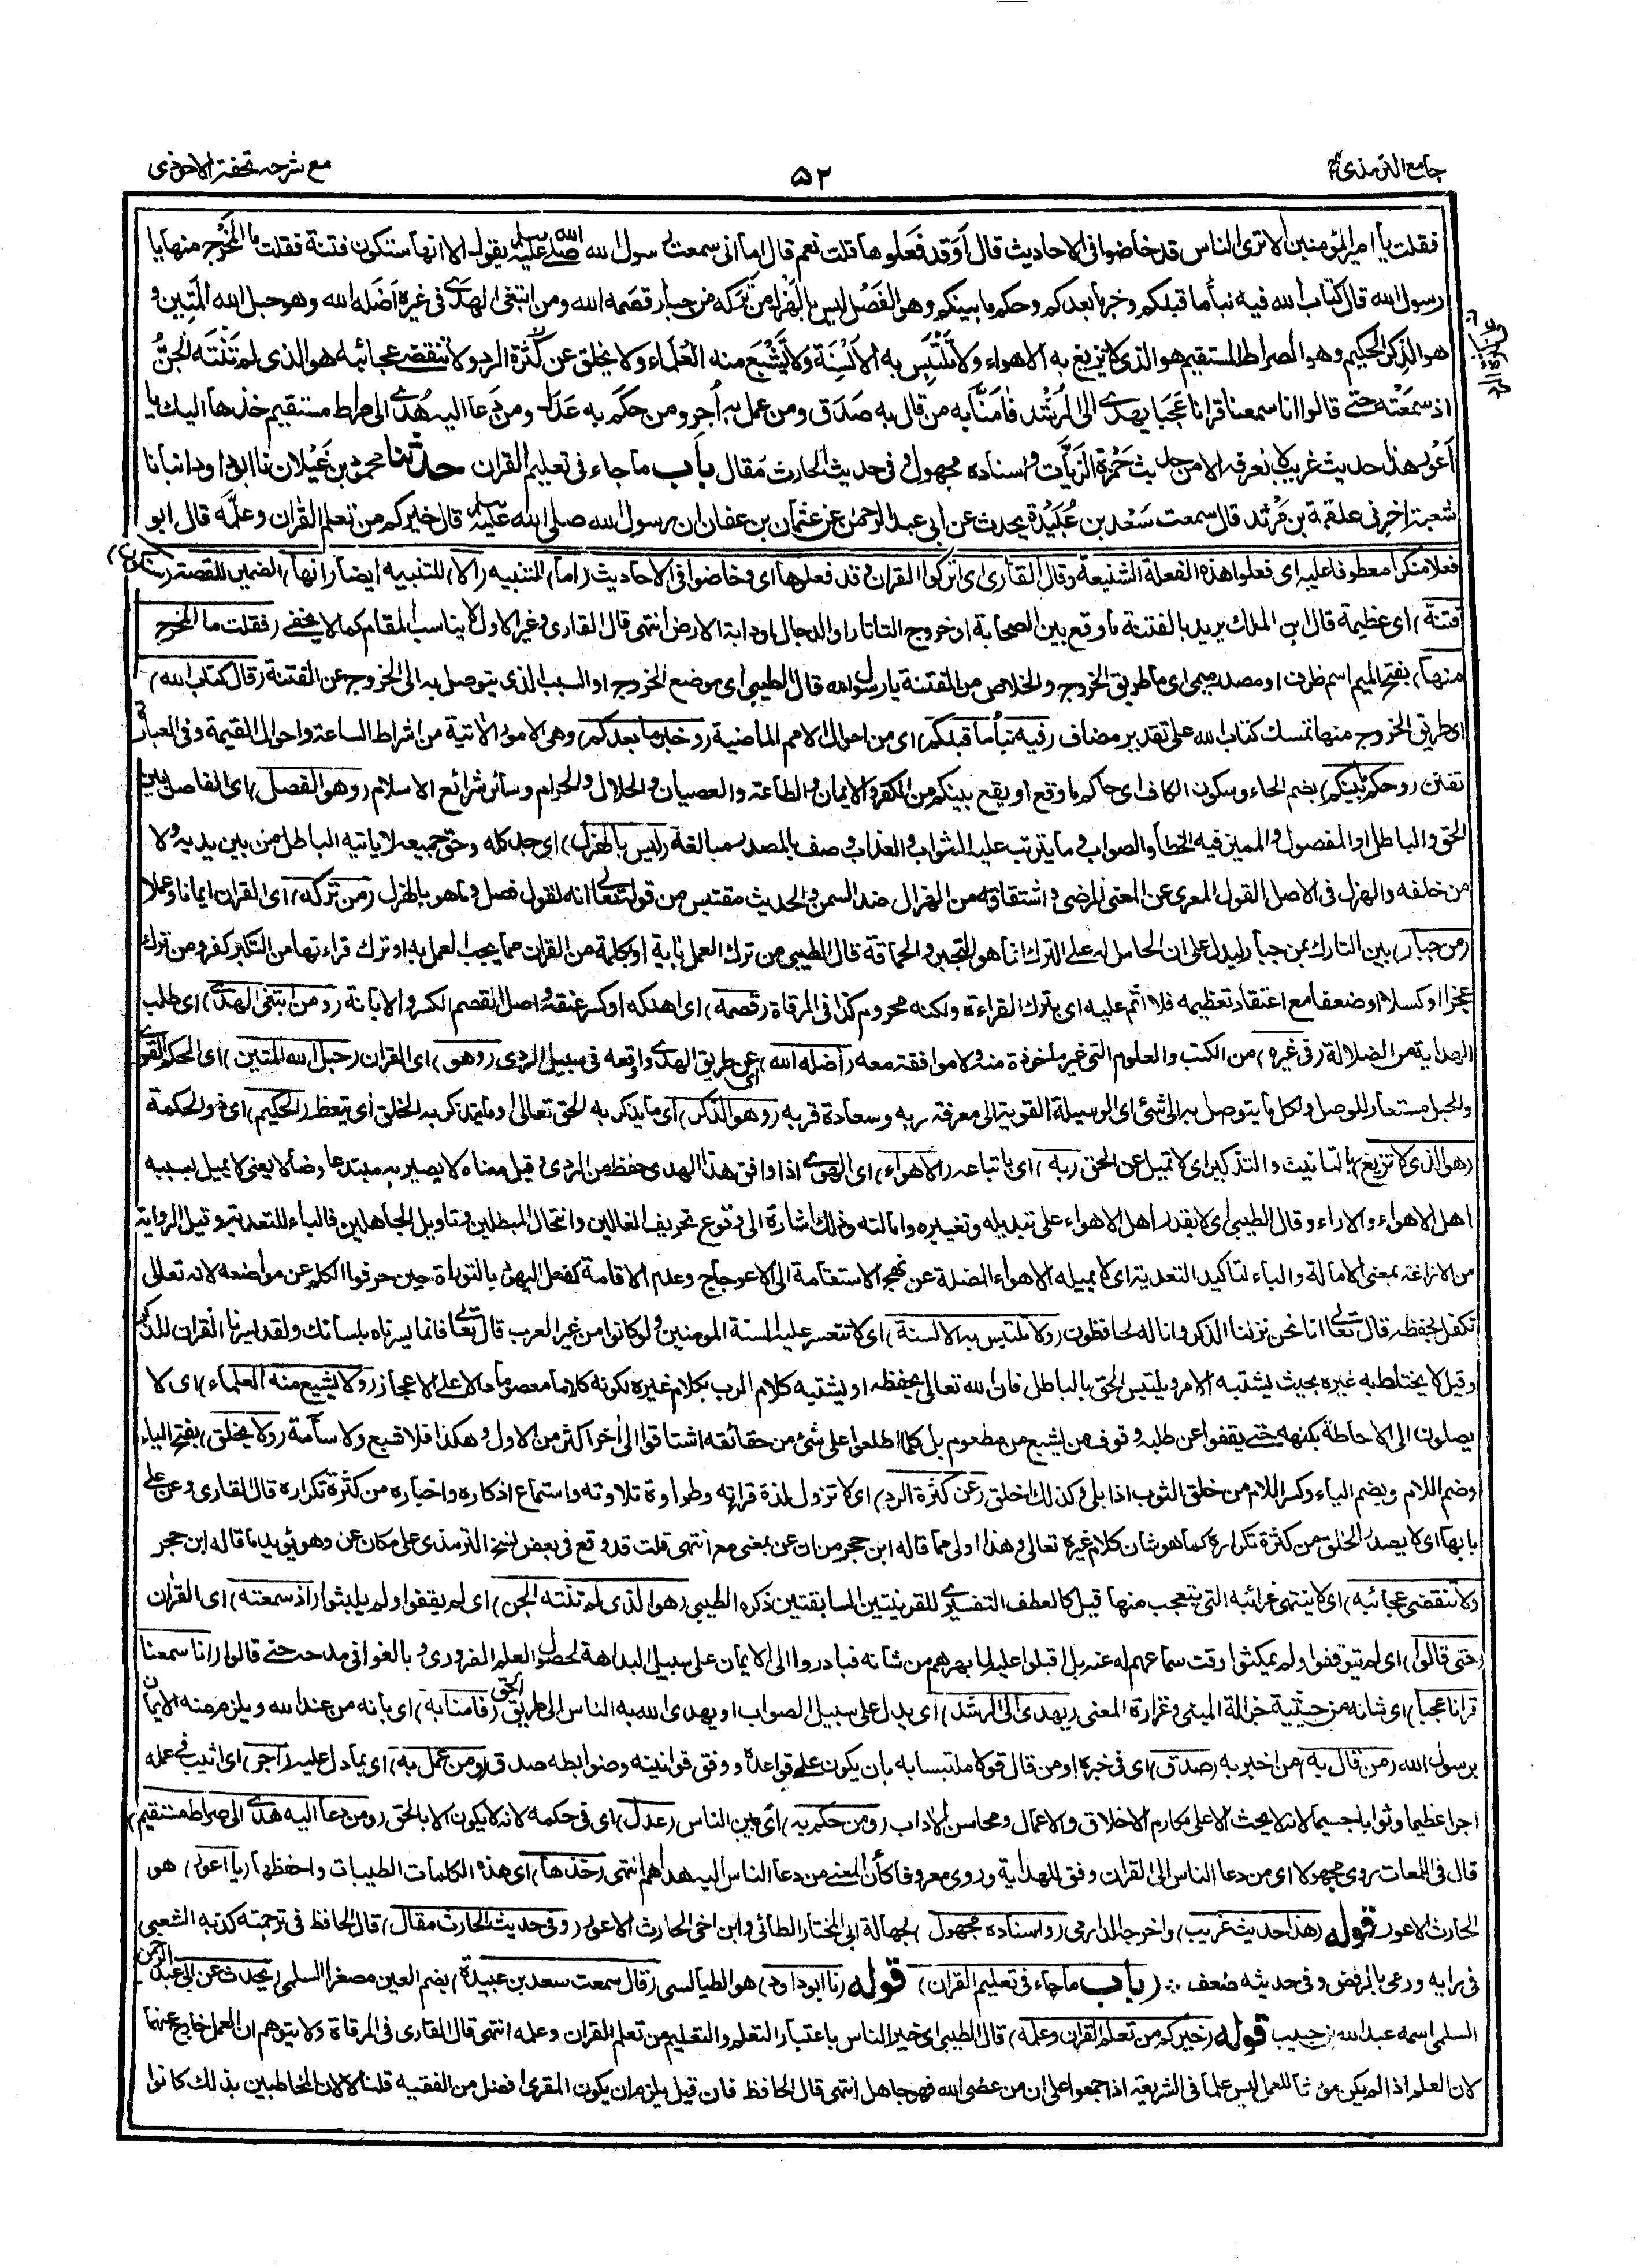 جامع الترمذي
۵۲
مع شرحه تحفة الاحوذى
فقلت يا امير المؤمنين الا ترى الناس قد خاضوا فى الاحاديث قال أوقد فعلوها قلت نعم قال اما انى سمعت رسول الله صلى الله عليه وسلم يقول الا انها ستكون فتنة فقلت ما المخرج منها يا
رسول الله قال كتاب الله فيه نبأ ما قبلكم وخبر ما بعدكم وحكم ما بينكم وهو الفصل ليس بالهزل من تركه من جبار قصمه الله ومن ابتغى الهدى فى غيره اضله الله وهو حبل الله المتين و
هو الذكر الحكيم وهو الصراط المستقيم هو الذى لا تزيغ به الاهواء ولا تلتبس به الالسنة ولا يشبع منه العلماء ولا يخلق عن كثرة الرد ولا تنقضى عجائبه هو الذى لم تنته الجن
اذ سمعته حتى قالوا انا سمعنا قرانا عجبا يهدى الى الرشد فامنا به من قال به صدق ومن عمل به أجر ومن حكم به عدل ومن دعا اليه هدى الى صراط مستقيم خذها اليك يا
أعور هذا حديث غريب لا نعرفه الا من حديث حمزة الزيات واسناده مجهول وفى حديث الحارث مقال باب ما جاء فى تعليم القران حدثنا محمود بن غيلان نا ابو داود انبأنا
شعبة اخبرنى علقمة بن مرثد قال سمعت سعد بن عبيدة يحدث عن ابى عبد الرحمن عن عثمان بن عفان ان رسول الله صلى الله عليه وسلم قال خيركم من تعلم القران وعلمه قال ابو
فعلا منكرا معطوفا عليه اى فعلوا هذه الفعلة الشنيعة وقال القارى اى اتركوا القران وقد فعلوها اى وخاضوا فى الاحاديث (اما) للتنبيه (الا) للتنبيه ايضا (انها) الضمير للقصة (ستكون
فتنة) اى عظيمة قال ابن الملك يريد بالفتنة ما وقع بين الصحابة او خروج التاتار او الدجال او دابة الارض انتهى قال القارى وغير الاول لا يناسب المقام كما لا يخفى (فقلت ما المخرج
منها) بفتح الميم اسم ظرف او مصدر ميمى اى ما طريق الخروج والخلاص من الفتنة يا رسول الله قال الطيبى اى موضع الخروج او السبب الذى يتوصل به الى الخروج عن الفتنة (قال كتاب الله)
اى طريق الخروج منها تمسك كتاب الله على تقدير مضاف (فيه نبأ ما قبلكم) اى من احوال الامم الماضية (وخبر ما بعدكم) وهى الامور الاتية من اشراط الساعة واحوال القيمة وفى العبارة
تفنن (وحكم ما بينكم) بضم الحاء وسكون الكاف اى حاكم ما وقع او يقع بينكم من الكفر والايمان والطاعة والعصيان والحلال والحرام وسائر شرائع الاسلام (وهو الفصل) اى الفاصل بين
الحق والباطل او المفصول والمميز فيه الخطأ والصواب وما يترتب عليه الثواب والعذاب وصف بالمصدر مبالغة (ليس بالهزل) اى جد كله وحق جميعه لا ياتيه الباطل من بين يديه ولا
من خلفه والهزل فى الاصل القول المعرى عن المعنى المرضى واشتقاقه من الهزال ضد السمن والحديث مقتبس من قوله تعالى انه لقول فصل وما هو بالهزل (من تركه) اى القران ايمانا وعملا
(من جبار) بين التارك بمن جبار ليدل على ان الحامل له على الترك انما هو التجبر والحماقة قال الطيبى من ترك العمل باية او بكلمة من القران مما يجب العمل به او ترك قراءتها من التكبر كفر ومن ترك
عجزا او كسلا او ضعفا مع اعتقاد تعظيمه فلا اثم عليه اى بترك القراءة ولكنه محروم كذا فى المرقاة (قصمه) اى اهلكه او كسر عنقه واصل القصم الكسر والابانة (ومن ابتغى الهدى) اى طلب
الهداية من الضلالة (فى غيره) من الكتب والعلوم التى غير ماخوذة منه ولا موافقة معه (اضله الله) اى عن طريق الهدى واوقعه فى سبيل الردى (وهو) اى القران (حبل الله المتين) اى المحكم القوى
والحبل مستعار للوصل ولكل ما يتوصل به الى شئ اى الوسيلة القوية الى معرفة ربه وسعادة قربه (وهو الذكر) اى ما يذكر به الحق تعالى او ما يتذكر به الخلق اى يتعظ (الحكيم) اى ذو الحكمة
(هو الذى لا تزيغ) بالتانيث والتذكير اى لا تميل عن الحق (به) اى باتباعه (الاهواء) اى الهوى اذا وافق هذا الهدى حفظ من الردى وقيل معناه لا يصير به مبتدعا وضالا يعنى لا يميل بسببه
اهل الاهواء والاراء وقال الطيبى اى لا يقدر اهل الاهواء على تبديله وتغييره وامالته وذلك اشارة الى وقوع تحريف الغالين وانتحال المبطلين وتاويل الجاهلين فالباء للتعدية وقيل الرواية
من الازاغة بمعنى الامالة والباء لتاكيد التعدية اى لا يميله الاهواء المضلة عن نهج الاستقامة الى الاعوجاج وعدم الاقامة كفعل اليهود بالتوراة حين حرفوا الكلم عن مواضعه لانه تعالى
تكفل بحفظه قال تعالى انا نحن نزلنا الذكر وانا له لحافظون (ولا تلتبس به الالسنة) اى لا تتعسر عليه السنة المومنين ولو كانوا من غير العرب قال تعالى فانما يسرناه بلسانك ولقد يسرنا القران للذكر
وقيل لا يختلط به غيره بحيث يشتبه الامر ويلتبس الحق بالباطل فان الله تعالى يحفظه او يشتبه كلام الرب بكلام غيره لكونه كلاما معصوما دالا على الاعجاز (ولا يشبع منه العلماء) اى لا
يصلون الى الاحاطة بكنهه حتى يقفوا عن طلبه وقوف من يشبع من مطعوم بل كلما اطلعوا على شئ من حقائقه اشتاقوا الى اخر اكثر من الاول وهكذا فلا شبع ولا سآمة (ولا يخلق) بفتح الياء
وضم اللام وبضم الياء وكسر اللام من خلق الثوب اذا بلى وكذلك اخلق (عن كثرة الرد) اى لا تزول لذة قراءته وطراوة تلاوته واستماع اذكاره واخباره من كثرة تكراره قال القارى وعن على
بابها اى لا يصدر الخلق من كثرة تكراره كما هو شان كلام غيره تعالى وهذا اولى مما قاله ابن حجر من ان عن بمعنى مع انتهى قلت قد وقع فى بعض نسخ الترمذى على مكان عن وهو يؤيد ما قاله ابن حجر
(ولا تنقضى عجائبه) اى لا ينتهى غرائبه التى يتعجب منها قيل كالعطف التفسيرى للقرينتين السابقتين ذكره الطيبى (هو الذى لم تنته الجن) اى لم يقفوا ولم يلبثوا (اذ سمعته) اى القران
(حتى قالوا) اى لم يتوقفوا ولم يمكثوا وقت سماعهم له عنه بل اقبلوا عليه لما بهرهم من شانه فبادروا الى الايمان على سبيل البداهة لحصول العلم الضرورى وبالغوا فى مدحه حتى قالوا (انا سمعنا
قرانا عجبا) اى شانه من حيثية جزالة المبنى وغزارة المعنى (يهدى الى الرشد) اى يدل على سبيل الصواب او يهدى الله به الناس الى طريق الحق (فامنا به) اى بانه من عند الله ويلزم منه الايمان
برسول الله (من قال به) من اخبر به (صدق) اى فى خبره او من قال قولا ملتبسا به بان يكون على قواعده ووفق قوانينه وضوابطه صدق (ومن عمل به) اى بما دل عليه (اجر) اى اثيب فى عمله
اجرا عظيما وثوابا جسيما لانه لا يحث الا على مكارم الاخلاق والاعمال ومحاسن الاداب (ومن حكم به) اى بين الناس (عدل) اى فى حكمه لانه لا يكون الا بالحق (ومن دعا اليه هدى الى صراط مستقيم)
قال فى اللمعات روى مجهولا اى من دعا الناس الى القران وفق للهداية وروى معروفا كأن المعنى من دعا الناس اليه هداهم انتهى (خذها) اى هذه الكلمات الطيبات واحفظها (يا اعور) هو
الحارث الاعور قوله (هذا حديث غريب) واخرجه الدارمى (واسناده مجهول) لجهالة ابى المختار الطائى وابن اخى الحارث الاعور (وفى حديث الحارث مقال) قال الحافظ فى ترجمته كذبه الشعبى
فى رايه ورمى بالرفض وفى حديثه ضعف (باب ما جاء فى تعليم القران) قوله (نا ابو داود) هو الطيالسى (قال سمعت سعد بن عبيدة) بضم العين مصغرا السلمى (يحدث عن ابى عبد الرحمن
السلمى اسمه عبد الله بن حبيب قوله (خيركم من تعلم القران وعلمه) قال الطيبى اى خير الناس باعتبار التعلم والتعليم من تعلم القران وعلمه انتهى قال القارى فى المرقاة ولا يتوهم ان العمل خارج عنهما
لان العلم اذا لم يكن مورثا للعمل ليس علما فى الشريعة اذ اجمعوا على ان من عصى الله فهو جاهل انتهى قال الحافظ فان قيل يلزم ان يكون المقرئ افضل من الفقيه قلنا لا لان المخاطبين بذلك كانوا